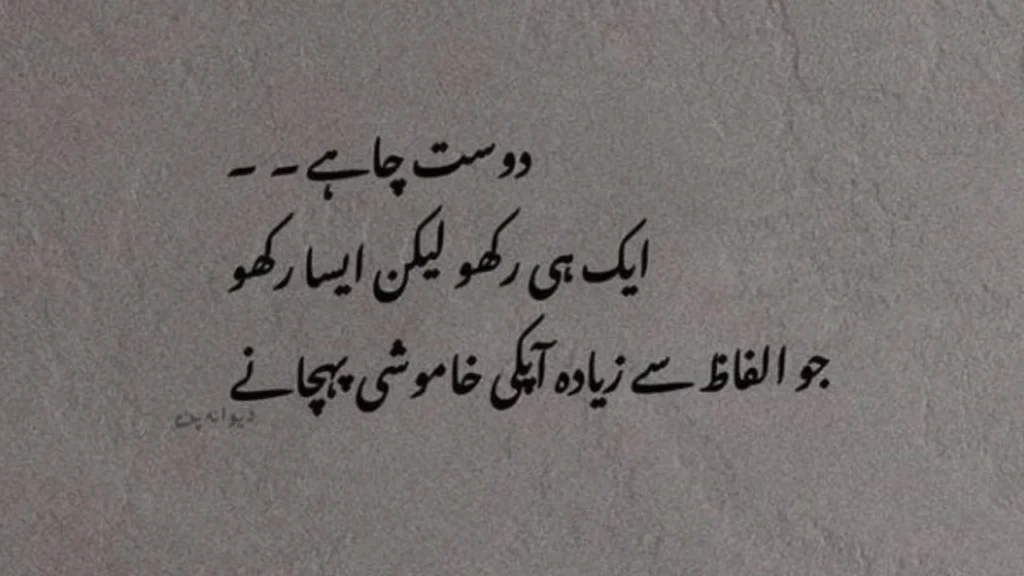 دوست چاہے۔ ۔
ایک ہی رکھو لیکن ایسا رکھو
جو الفاظ سے زیادہ آپکی خاموشی پہچانے